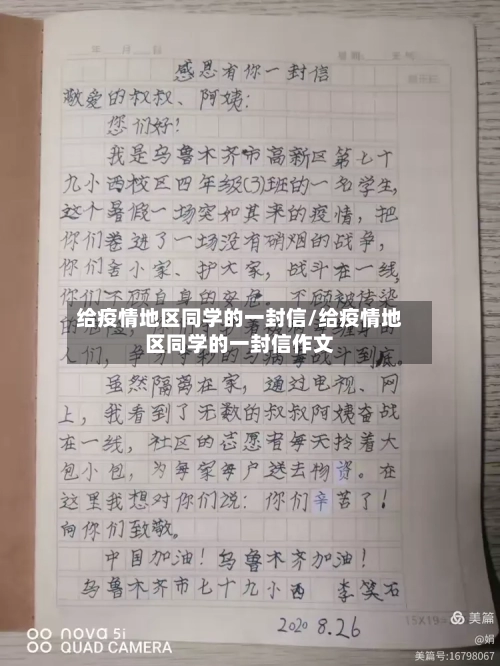 年 月 日 星期 天气
感恩有你一封信
敬爱的叔叔、阿姨:
您们好!
我是乌鲁木齐市高新区第七十
九小西校区四年级(3)班的一名学生,
这个暑假一场突如其来的疫情,把
你们卷进了一场没有硝烟的战争,
你们舍小家、护大家,战斗在一线,
你们不顾自身的安危、不顾被传染
给疫情地区同学的一封信/给疫情地
区同学的一封信作文
人们,
斗到底。
虽然隔离在家,通过电视、网
上,我看到了无数的叔叔阿姨奋战
在一线,社区的志愿者每天拎着大
包小包,为每家每户送去物资。在
这里我想对你们说:你们辛苦了!
向你们致敬。
中国加油!乌鲁木齐加油!
乌鲁木齐市七十九小西 李笑石
2020 8.26
15X19
美篇
@娟
nova 5i
QUAD CAMERA
美篇号:16798067